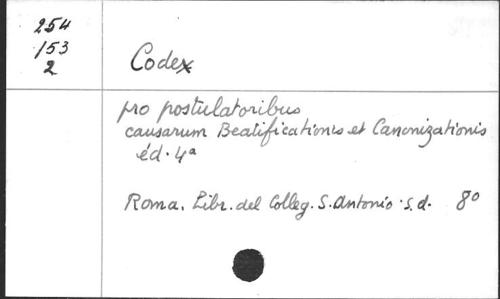 254
153
2
Codex
pro postulatoribus
causarum Beatificationis et Canonizationis
éd. 4a
Roma. Libr. del Colleg. S. Antonio. s.d. 8o